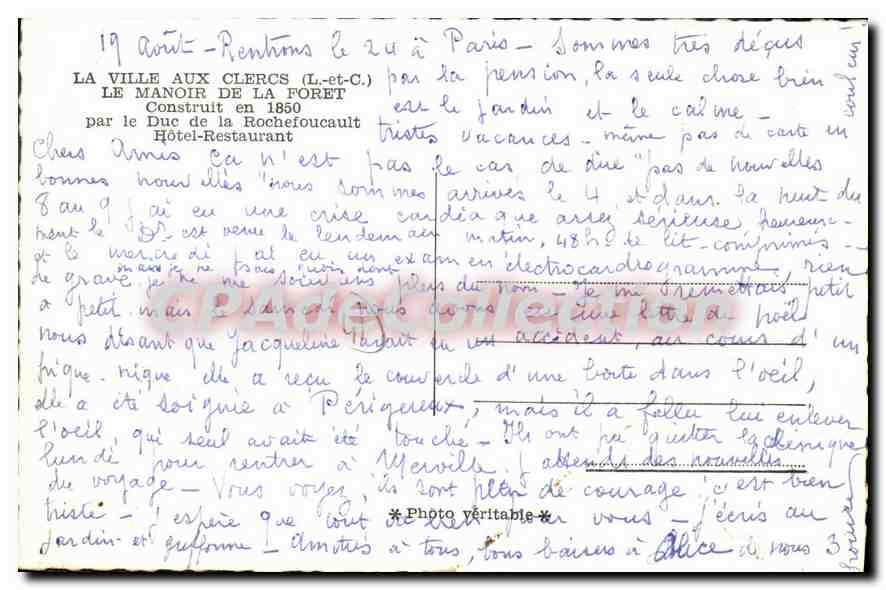 19 Août - Rentrons le 24 à Paris - Sommes très déçus
par la pension, la seule chose bien
est le jardin et le calme -
tristes vacances - même pas de carte en
couleur!
LA VILLE AUX CLERCS (L.-et-C.)
LE MANOIR DE LA FORET
Construit en 1850
par le Duc de la Rochefoucault
Hôtel-Restaurant
Chers Amis Ça n'est pas le cas de dire "pas de nouvelles
bonnes nouvelles" nous sommes arrivés le 4 et dans la nuit du
8 au 9 j'ai eu une crise cardiaque assez sérieuse heureuse-
ment le Dr est venu le lendemain matin, 48h de lit - comprimés -
et le mercredi j'ai eu un examen électrocardiogramme, rien
de grave, je ne me souviens plus du nom - Je me remettais petit
à petit, mais le nous avons eu une lettre de Noël
nous disant que Jacqueline avait eu un accident, au cours d'un
pique-nique elle a reçu le couvercle d'une boîte dans l'oeil,
elle a été soignée à Périgueux, mais il a fallu lui enlever
l'oeil, qui seul avait été touché - Ils ont pu quitter la clinique
lundi pour rentrer à Merville. J'attends des nouvelles
du voyage - Vous voyez, ils sont plein de courage! c'est bien
triste - J'espère que tout va bien pour vous - j'écris au
jardin et griffonne - Amitiés à tous, bons baisers à Alice de nous 3
✻ Photo véritable ✻
CPAdeCollection